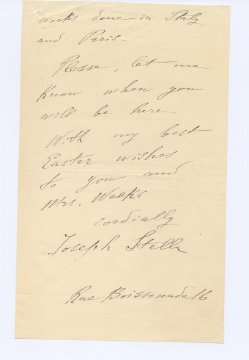 works done in Italy
and Paris.
Please, let me
know when you
will be here.
With my best
Easter wishes
to you and
Mrs. Weeks
cordially
Joseph Stella
Rue Boissonade 16